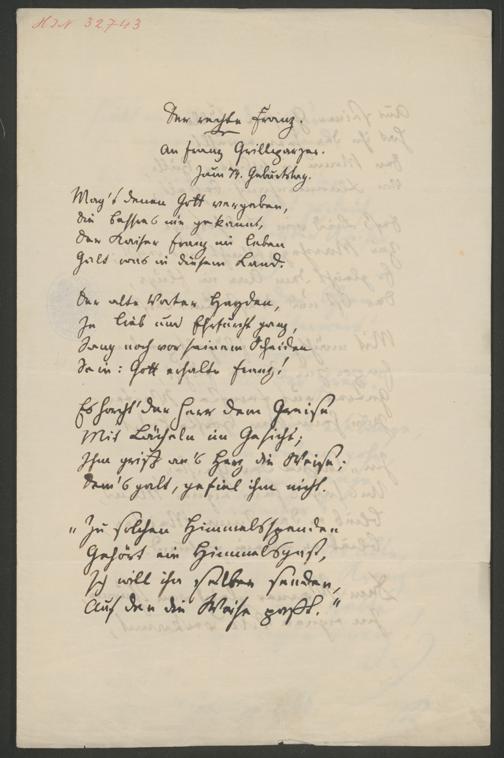 HIN 32743
Der rechte Franz.
An Franz Grillparzer.
Zum Geburtstag.
Mag's denen Gott vergeben,
Die bessres nie gekannt,
Der Kaiser Franz im Leben
Galt was in diesem Land.
Der alte Vater Haydn,
In Lieb und Ehrfurcht ganz,
Sang noch vor seinem Scheiden
Sein: Gott erhalte Franz!
Es horcht' der Herr dem Greise
Mit Lächeln im Gesicht;
Ihm griff an's Herz die Weise;
Dem's galt, gefiel ihm nicht.
„Zu solchen Himmelsspenden
Gehört ein Himmelsgast,
Ich will ihn selber senden,
Auf den die Weise passt."